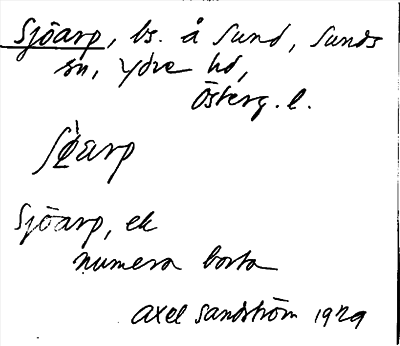 Sjöarp, bs. å Sund, Sunds
sn, Ydre hd,
Österg. l.
Sjöarp, ek
numera borta
Axel Sandström 1929